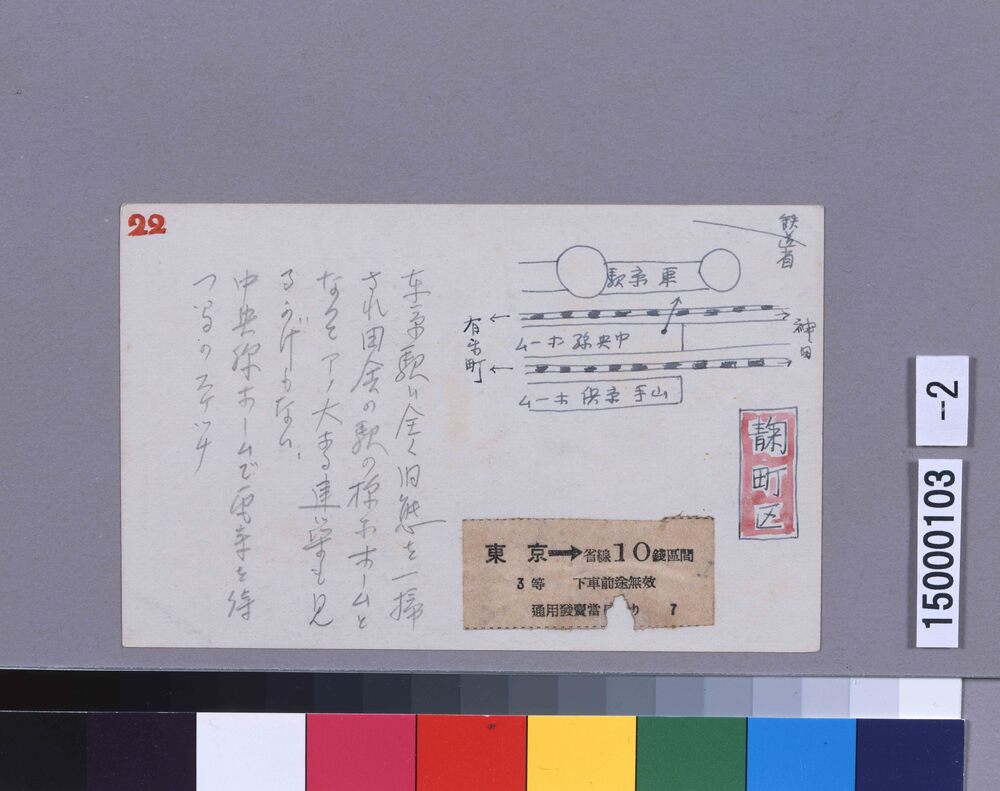 22
鉄道省
東京駅
有楽町
神田
中央線ホーム
山手京浜ホーム
麹町区
東京駅は全く旧態を一掃
され田舎の駅の様にホームと
なってアノ大きな建築も見
るかげもない、
中央線ホームで電車を待
つ間のスケッチ
東京→省線10錢區間
3等 下車前途無效
通用發賣當日 り 7
15000103
-2